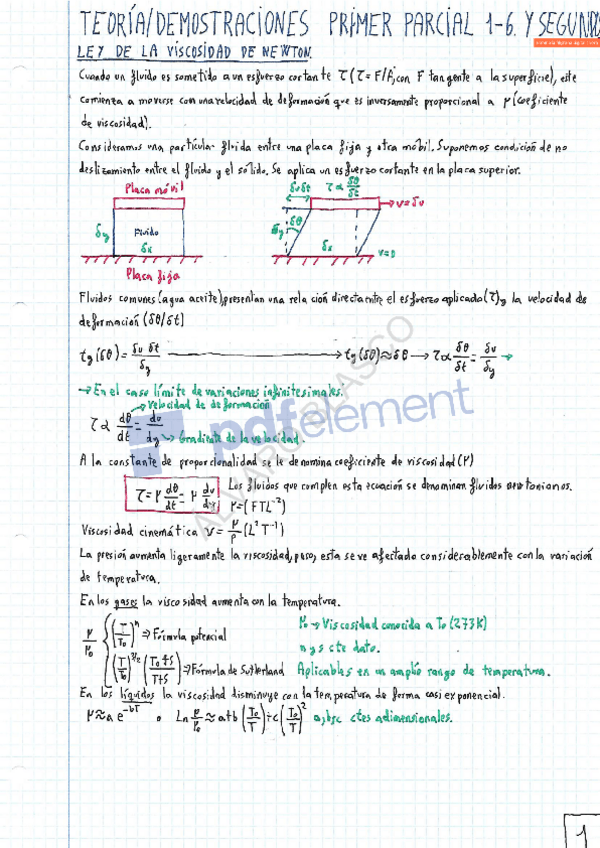 TEORÍA/DEMOSTRACIONES PRIMER PARCIAL 1-6. Y SEGUNDO
LEY DE LA VISCOSIDAD DE NEWTON.
Cuando un fluido es sometido a un esfuerzo cortante τ (τ = F/A; con F tangente a la superficie), este
comienza a moverse con una velocidad de deformación que es inversamente proporcional a μ (coeficiente
de viscosidad).
Consideramos una particular fluida entre una placa fija y otra móbil. Suponemos condición de no
deslizamiento entre el fluido y el sólido. Se aplica un esfuerzo cortante en la placa superior.
Placa móvil
δy Fluido
δx
Placa fija
δuδt τ α δθ/δt
v=δu
δy δθ
δx
v=0
Fluidos comunes (agua aceite), presentan una relación directa entre el esfuerzo aplicado (τ) y la velocidad de
deformación (δθ/δt)
tg(δθ) = δu δt/δy → tg(δθ)≈δθ → τ α δθ/δt = δu/δy →
→ En el caso límite de variaciones infinitesimales.
→ Velocidad de deformación
τ α dθ/dt = du/dy → Gradiente de la velocidad.
A la constante de proporcionalidad se le denomina coeficiente de viscosidad (μ)
τ = μ dθ/dt = μ du/dy
Los fluidos que complen esta ecuación se denominan fluidos newtonianos.
μ = (FTL⁻²)
Viscosidad cinemática ν = μ/ρ (L²T⁻¹)
La presión aumenta ligeramente la viscosidad, pero, esta se ve afectado considerablemente con la variación
de temperatura.
En los gases la viscosidad aumenta con la temperatura.
μ/μ₀ { (T/T₀)ⁿ ⇒ Fórmula potencial
(T/T₀)^3/2 (T₀+S/T+S) ⇒ Fórmula de Sutherland
μ₀ → Viscosidad conocida a T₀ (273K)
n y s cte dato.
Aplicables en un amplio rango de temperatura.
En los líquidos la viscosidad disminuye con la temperatura de forma casi exponencial.
μ ≈ a e^-bT o Ln μ/μ₀ ≈ a+b (T₀/T) + c (T₀/T)² a, b y c ctes adimensionales.
pdfelement
ALVARO BLASCO
1